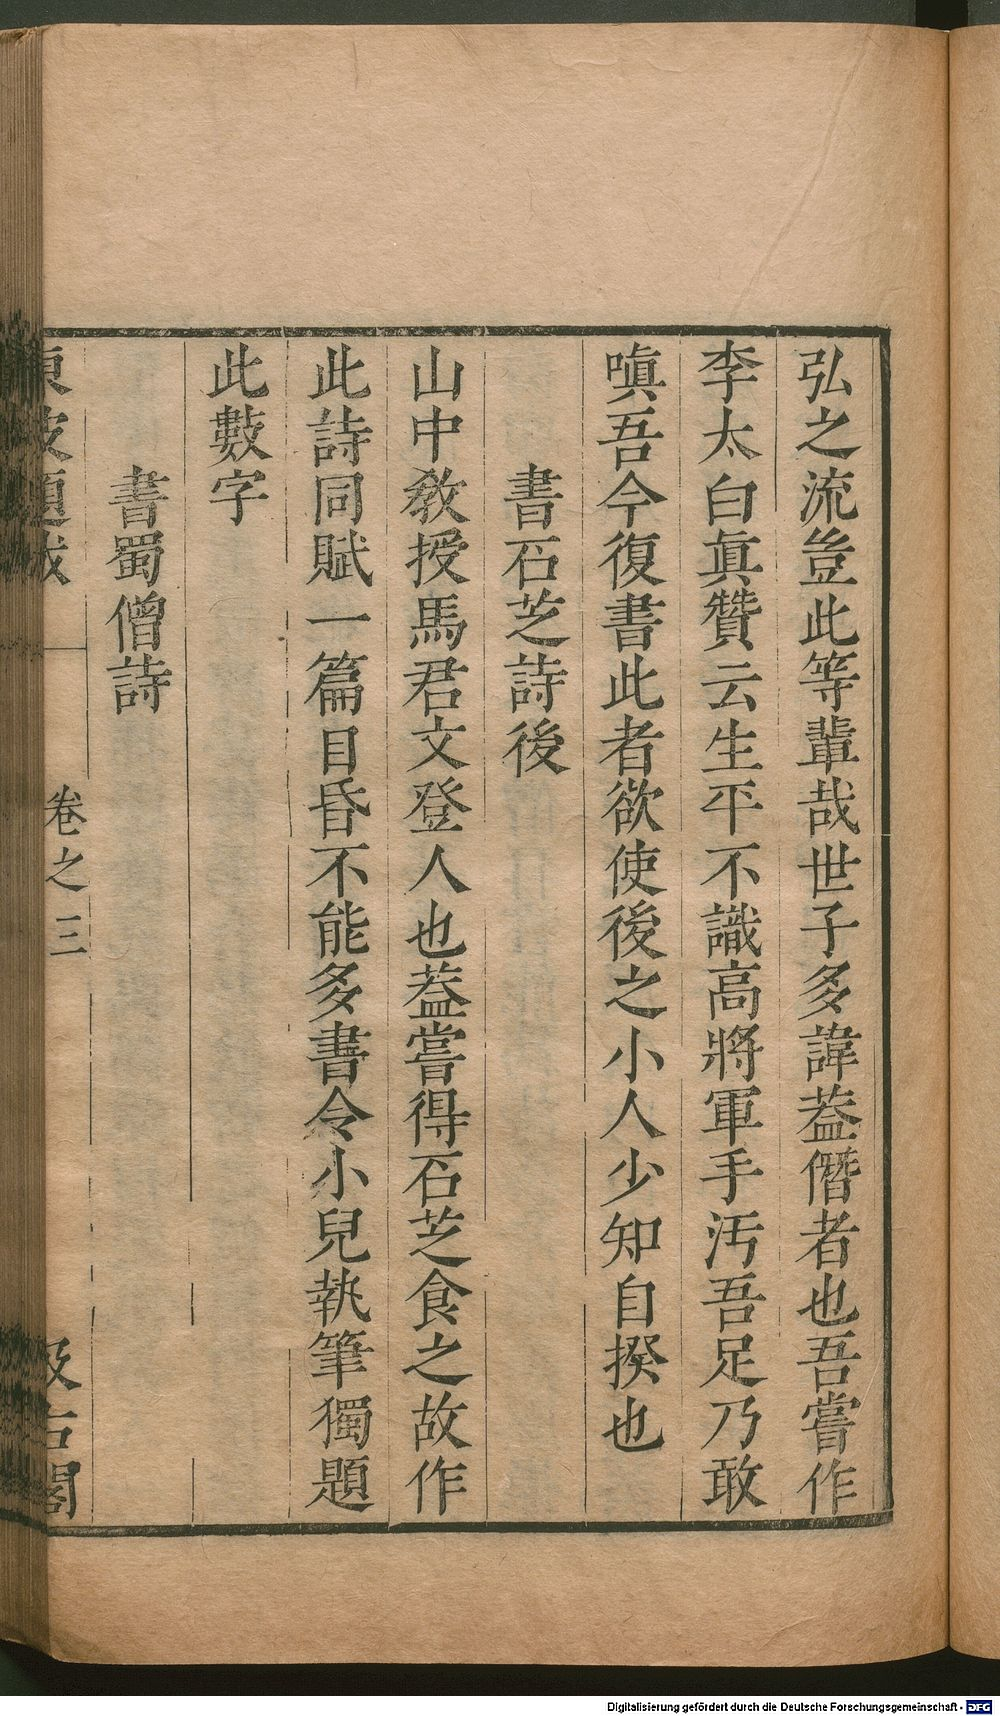 弘之流豈此等輩哉世子多諱葢僭者也吾嘗作
李太白眞贊云生平不識高將軍手汚吾足乃敢
嗔吾今復書此者欲使後之小人少知自揆也
書石芝詩後
山中敎授馬君文登人也葢嘗得石芝食之故作
此詩同賦一篇目昏不能多書令小兒執筆獨題
此數字
書蜀僧詩
東坡題跋 卷之三 汲古閣
Digitalisierung gefördert durch die Deutsche Forschungsgemeinschaft - DFG